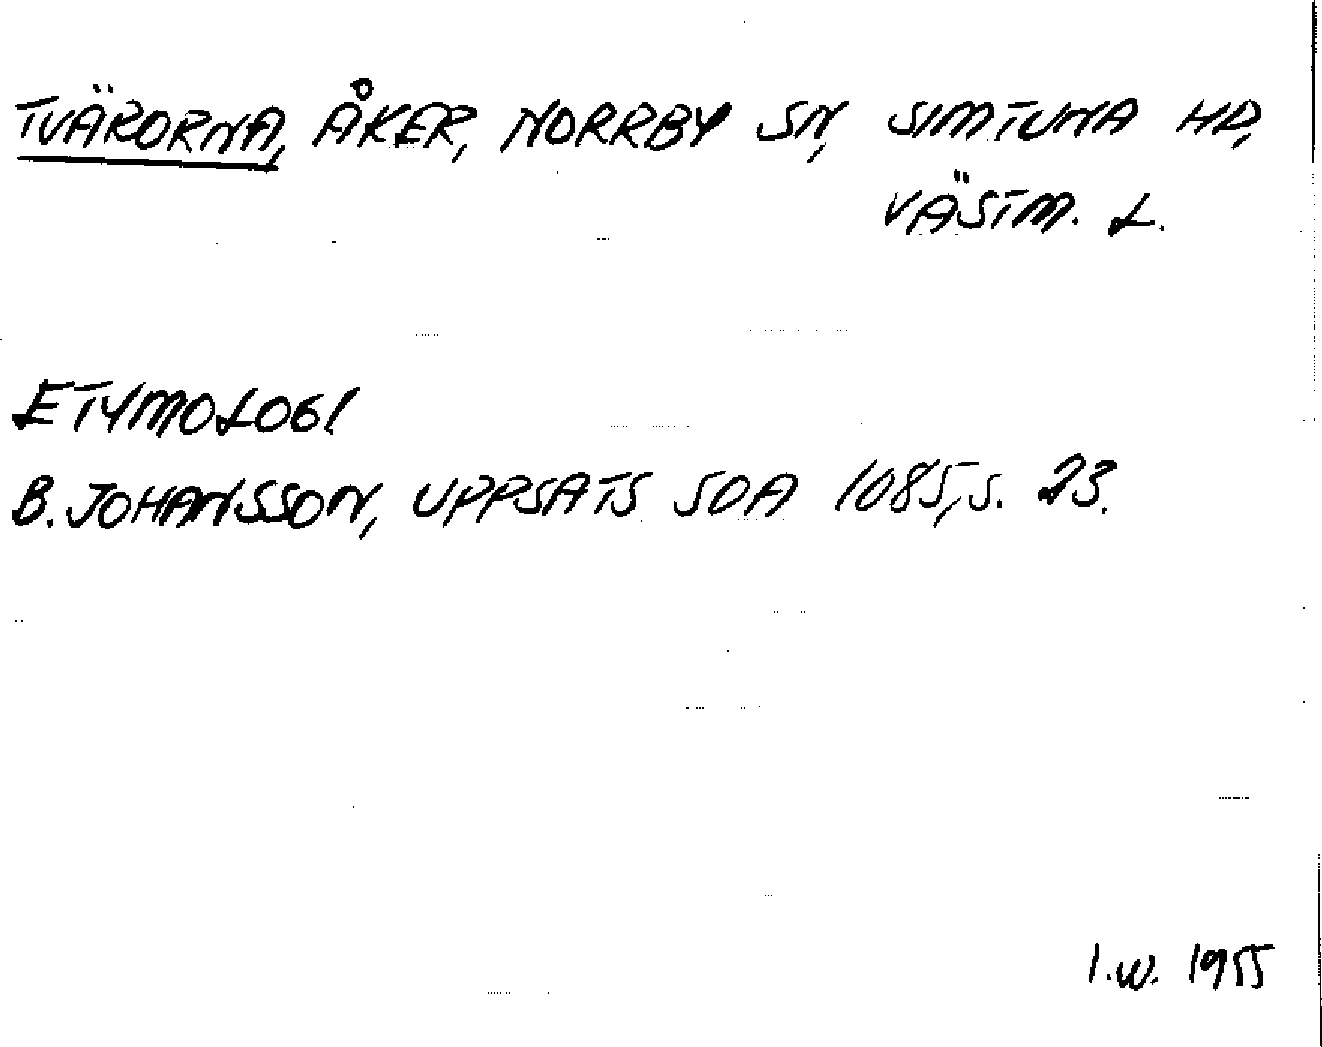 TVÄRORNA, ÅKER, NORRBY SN, SIMTUNA HD,
VÄSTM. L.
ETYMOLOGI
B. JOHANSSON, UPPSATS SOA 1085, S. 23.
I.W. 1955